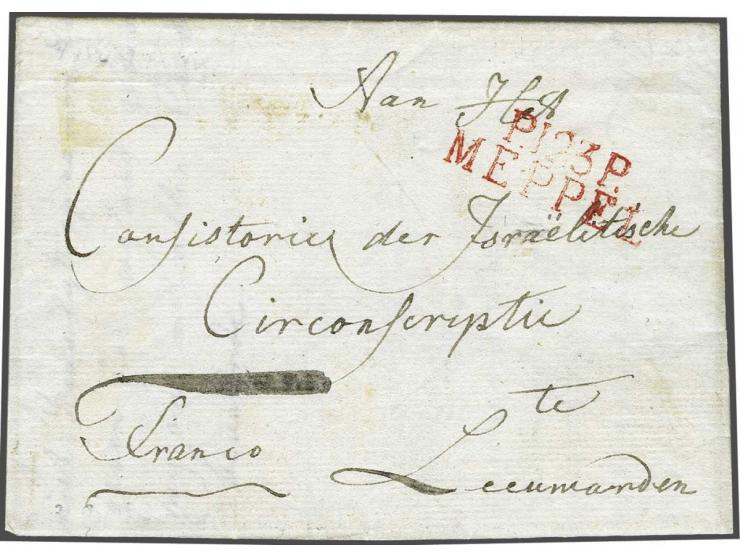 Aan Het
P.123P.
MEPPEL
Consistorie der Israëlitische
Circonscriptie
te
Franco Leeuwarden